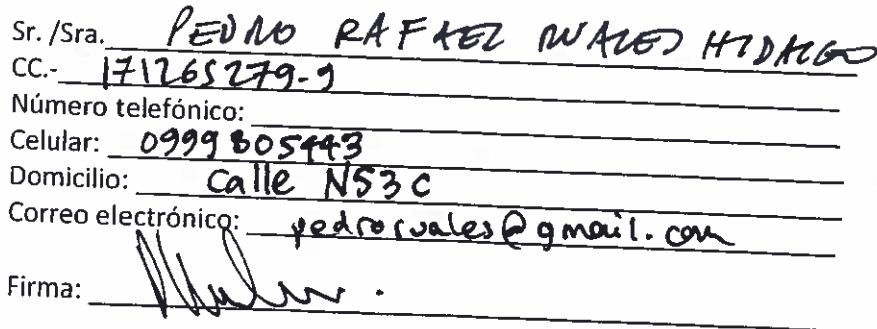 Sr. /Sra. PEDRO RAFAEL RUALES HIDALGO
CC.- 171265279-9
Número telefónico:
Celular: 0999805443
Domicilio: Calle N53C
Correo electrónico: pedroruales@gmail.com
Firma: